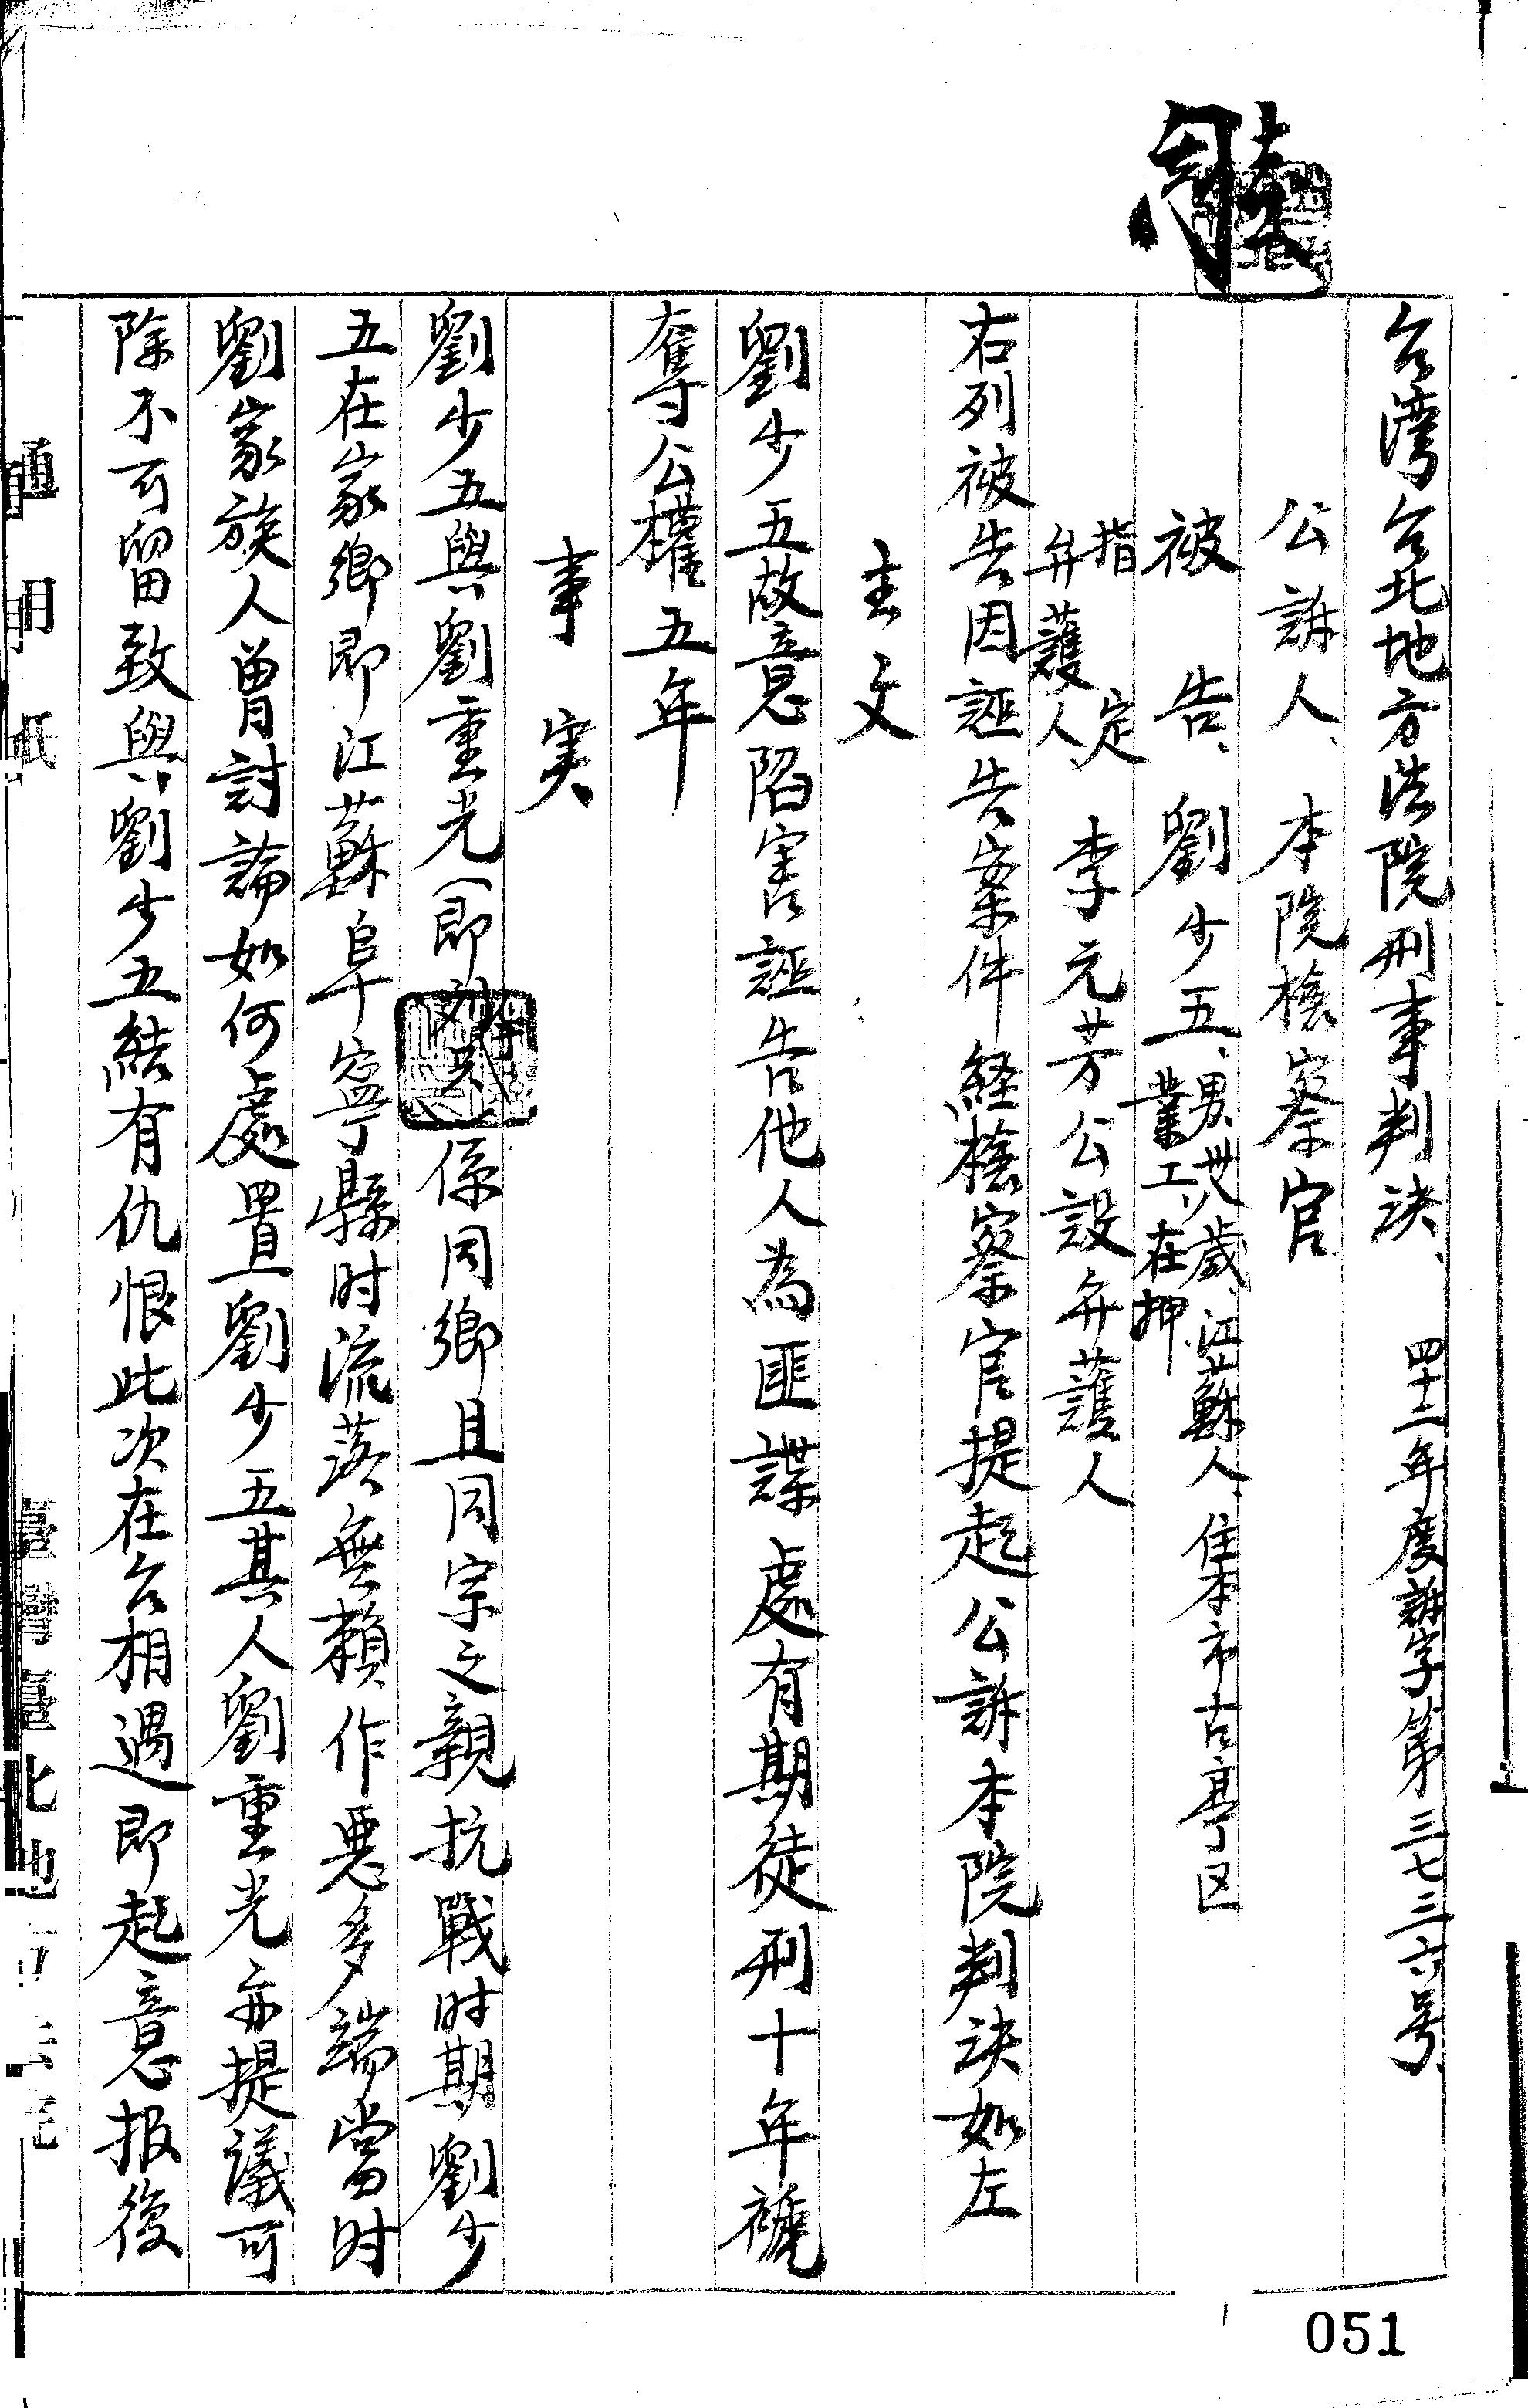 台湾台北地方法院刑事判决、四十二年度訴字第三七三六号、
公訴人、本院檢察官
被告、劉少五、男、卅八歲、江蘇人、住本市古亭区
業工、在押
指定
弁護人、李元芳公設弁護人
右列被告因誣告案件経檢察官提起公訴本院判决如左
主文
劉少五故意陷害誣告他人為匪諜處有期徒刑十年褫
奪公權五年
事実
劉少五與劉重光(即係同鄉且同宗之親抗戰时期劉少
五在家鄉即江蘇阜寧縣时流落無賴、作悪多端當时
劉家族人曾討論如何處置劉少五其人劉重光亦提議可
除不可留致與劉少五結有仇恨此次在台相遇即起意报復
通用紙
臺灣臺北地方法院
051